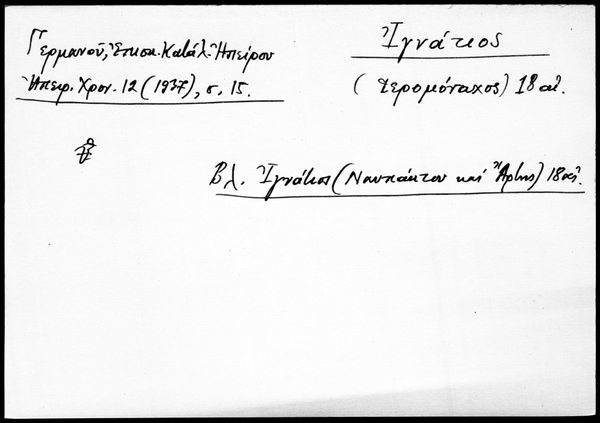 Γερμανοῦ, Ἐπισκ. Κατάλ. Ἠπείρου
Ἠπειρ. Χρον. 12 (1937), σ. 15.
Ἰγνάτιος
(Ἱερομόναχος) 18 αἰ.
Βλ. Ἰγνάτιος (Ναυπάκτου καὶ Ἄρτης) 18 αἰ.